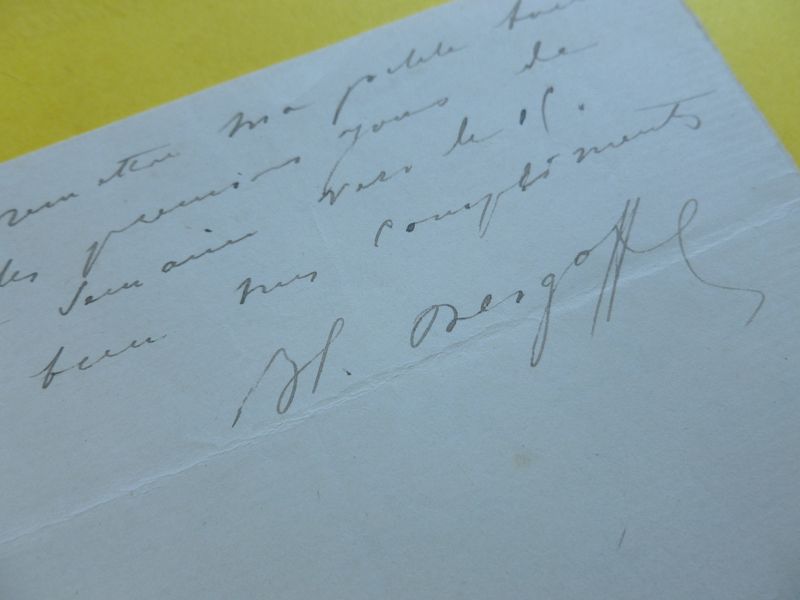 remettre ma petite
des premiers jours de
semaine vers le 15.
bien mes compliments
Bl. Desgoffe